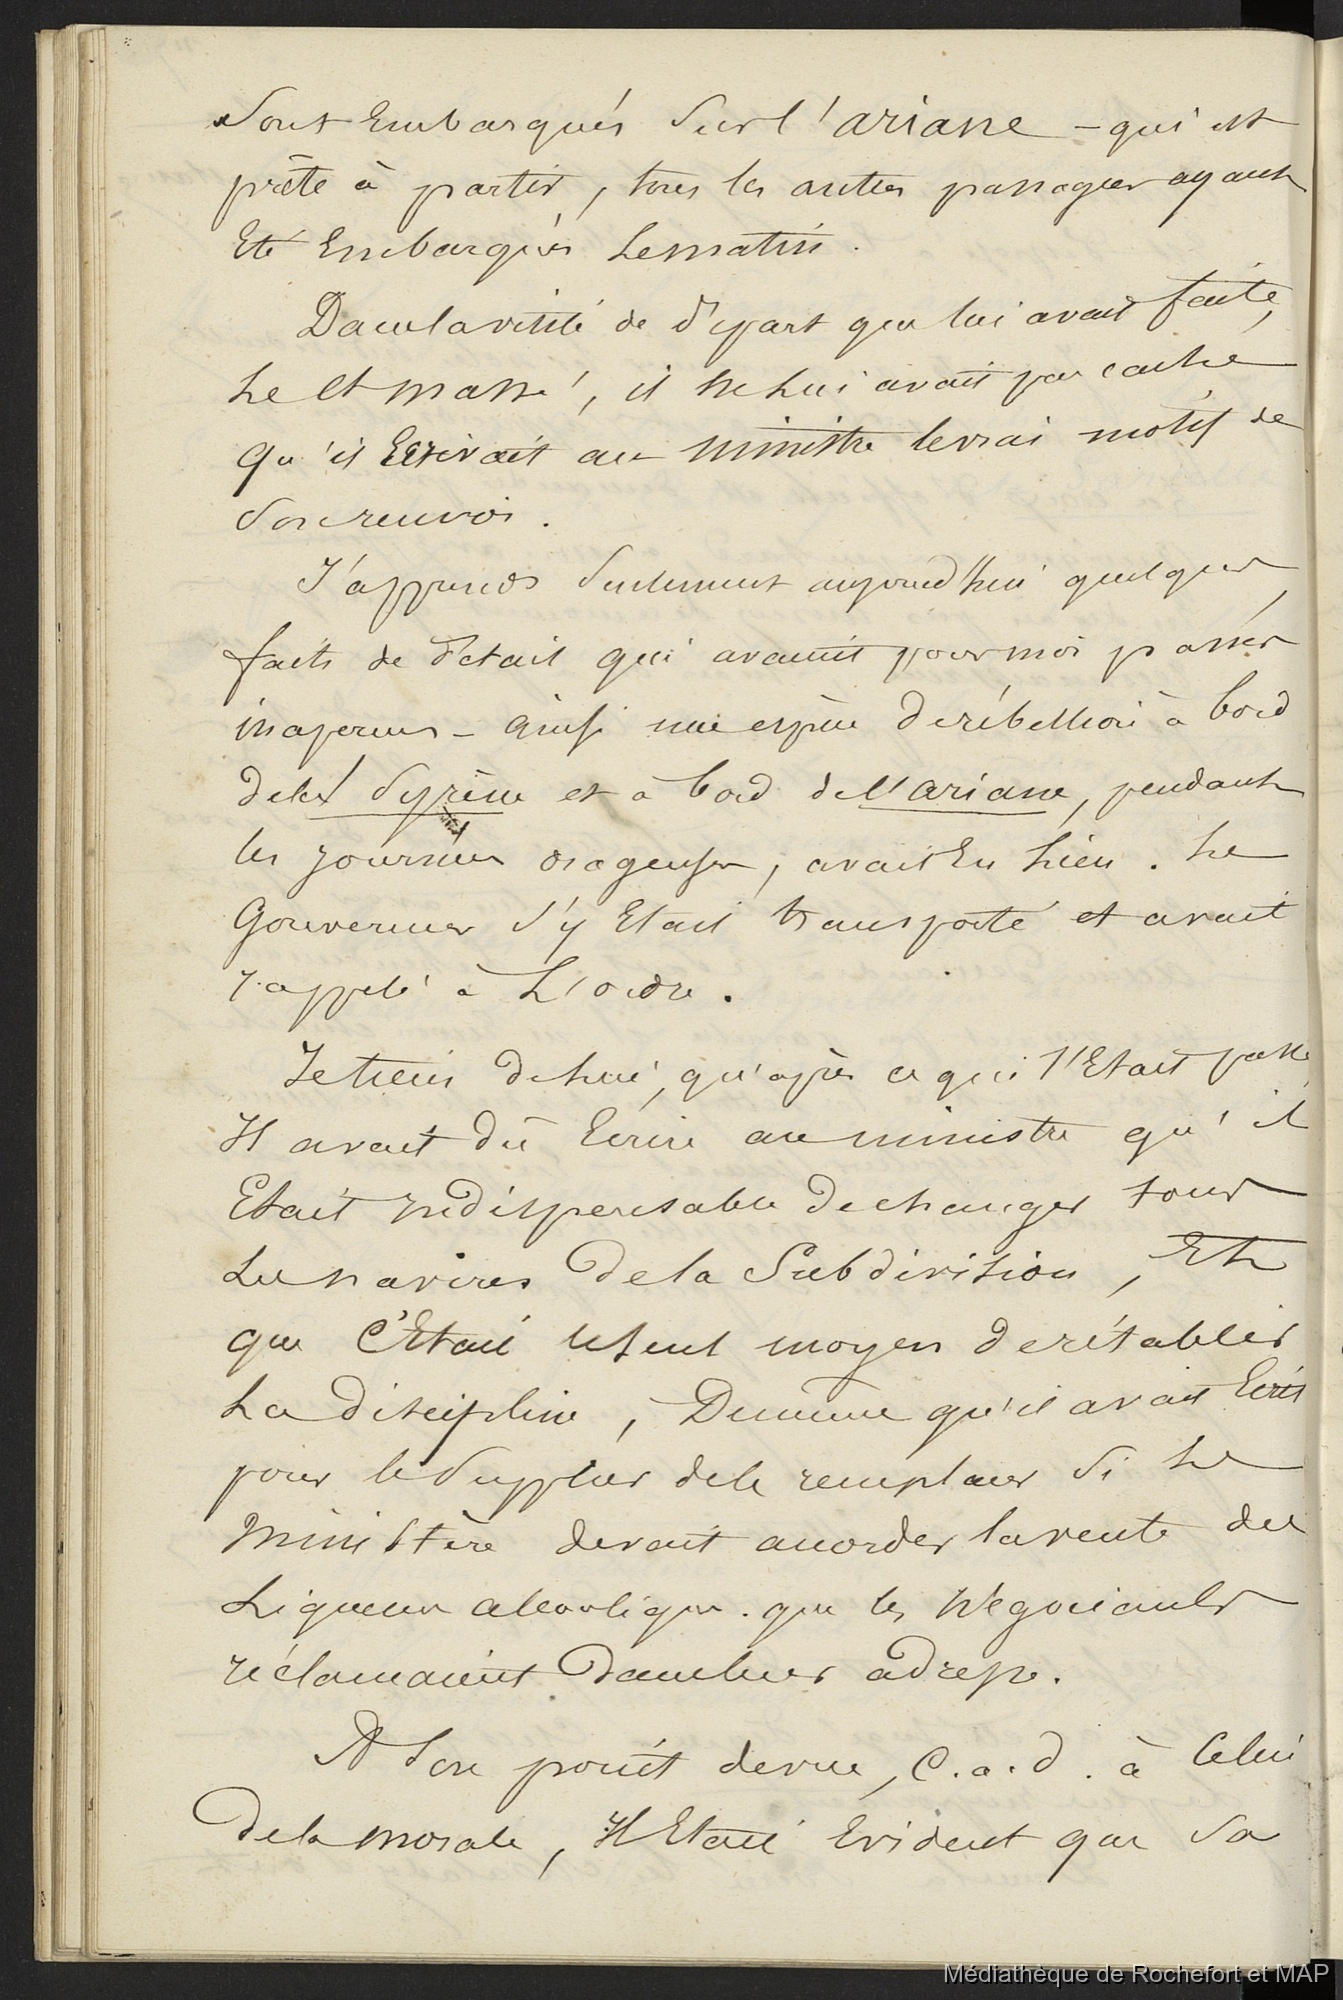 sont embarqués sur l'ariane - qui est
prête à partir, tous les autres passagers ayant
Eté Embarqués Le matin.
Dans la visite de départ que lui avait faite,
Le Ct massé, il ne lui avait pas caché
qu'il Ecrivait au ministre le vrai motif de
son renvoi.
J'apprends seulement aujourd'hui quelques
faits de détail qui avaient pour moi passés
inaperçus - ainsi une espèce de rébellion à bord
de la Syrène et à bord de l'ariane, pendant
les journées orageuses, avait Eu Lieu. Le
Gouverneur s'y Etait transporté et avait
rappelé à L'ordre.
Je tiens de lui, qu'après ce qui s'Etait passé
Il avait dû Ecrire au ministre qu'il
Etait indispensable de changer tous
Les navires de la Subdivision, Et
que C'Etait le seul moyen de rétablir
La discipline, De même qu'il avait Ecrit
pour le supplier de le remplacer si Le
Ministère devait accorder la vente des
Liqueurs alcooliques. que les Négociants
réclamaient dans leur adresse.
A son point de vue, C.a.d. à Celui
de la morale, Il Etait Evident que sa
Médiathèque de Rochefort et MAP